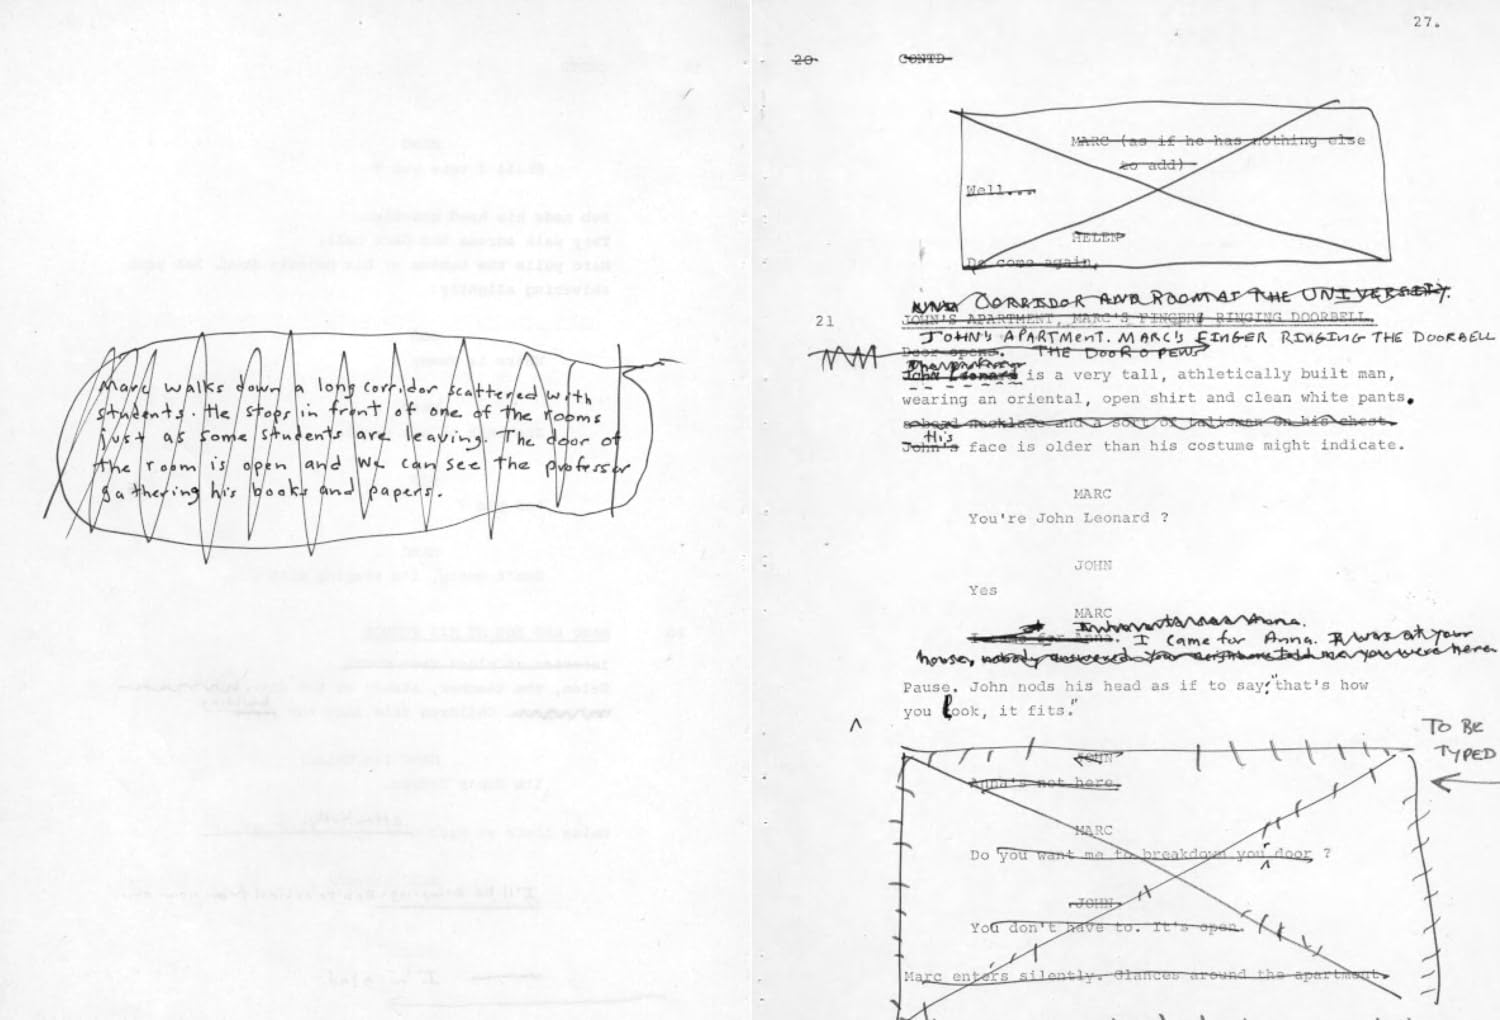 Marc walks down a long corridor scattered with
students. He stops in front of one of the rooms
just as some students are leaving. The door of
the room is open and we can see the professor
gathering his books and papers.
27.
20 CONTD
MARC (as if he has nothing else
to add)
Well...
HELEN
Do come again.
CORRIDOR AND ROOM AT THE UNIVERSITY.
21 JOHN'S APARTMENT, MARC'S FINGER RINGING DOORBELL.
JOHN'S APARTMENT. MARC'S FINGER RINGING THE DOORBELL
Door opens. THE DOOR OPENS
John Leonard is a very tall, athletically built man,
wearing an oriental, open shirt and clean white pants.
a bead necklace and a sort of talisman on his chest.
His
John's face is older than his costume might indicate.
MARC
You're John Leonard ?
JOHN
Yes
MARC
Anna.
for Anna. I came for Anna. I was at your
house, nobody answered. Your neighbors told me you were here.
Pause. John nods his head as if to say: "that's how
you look, it fits."
TO BE
TYPED
JOHN
Anna's not here.
MARC
r
Do you want me to breakdown you door ?
JOHN
You don't have to. It's open.
Marc enters silently. Glances around the apartment.